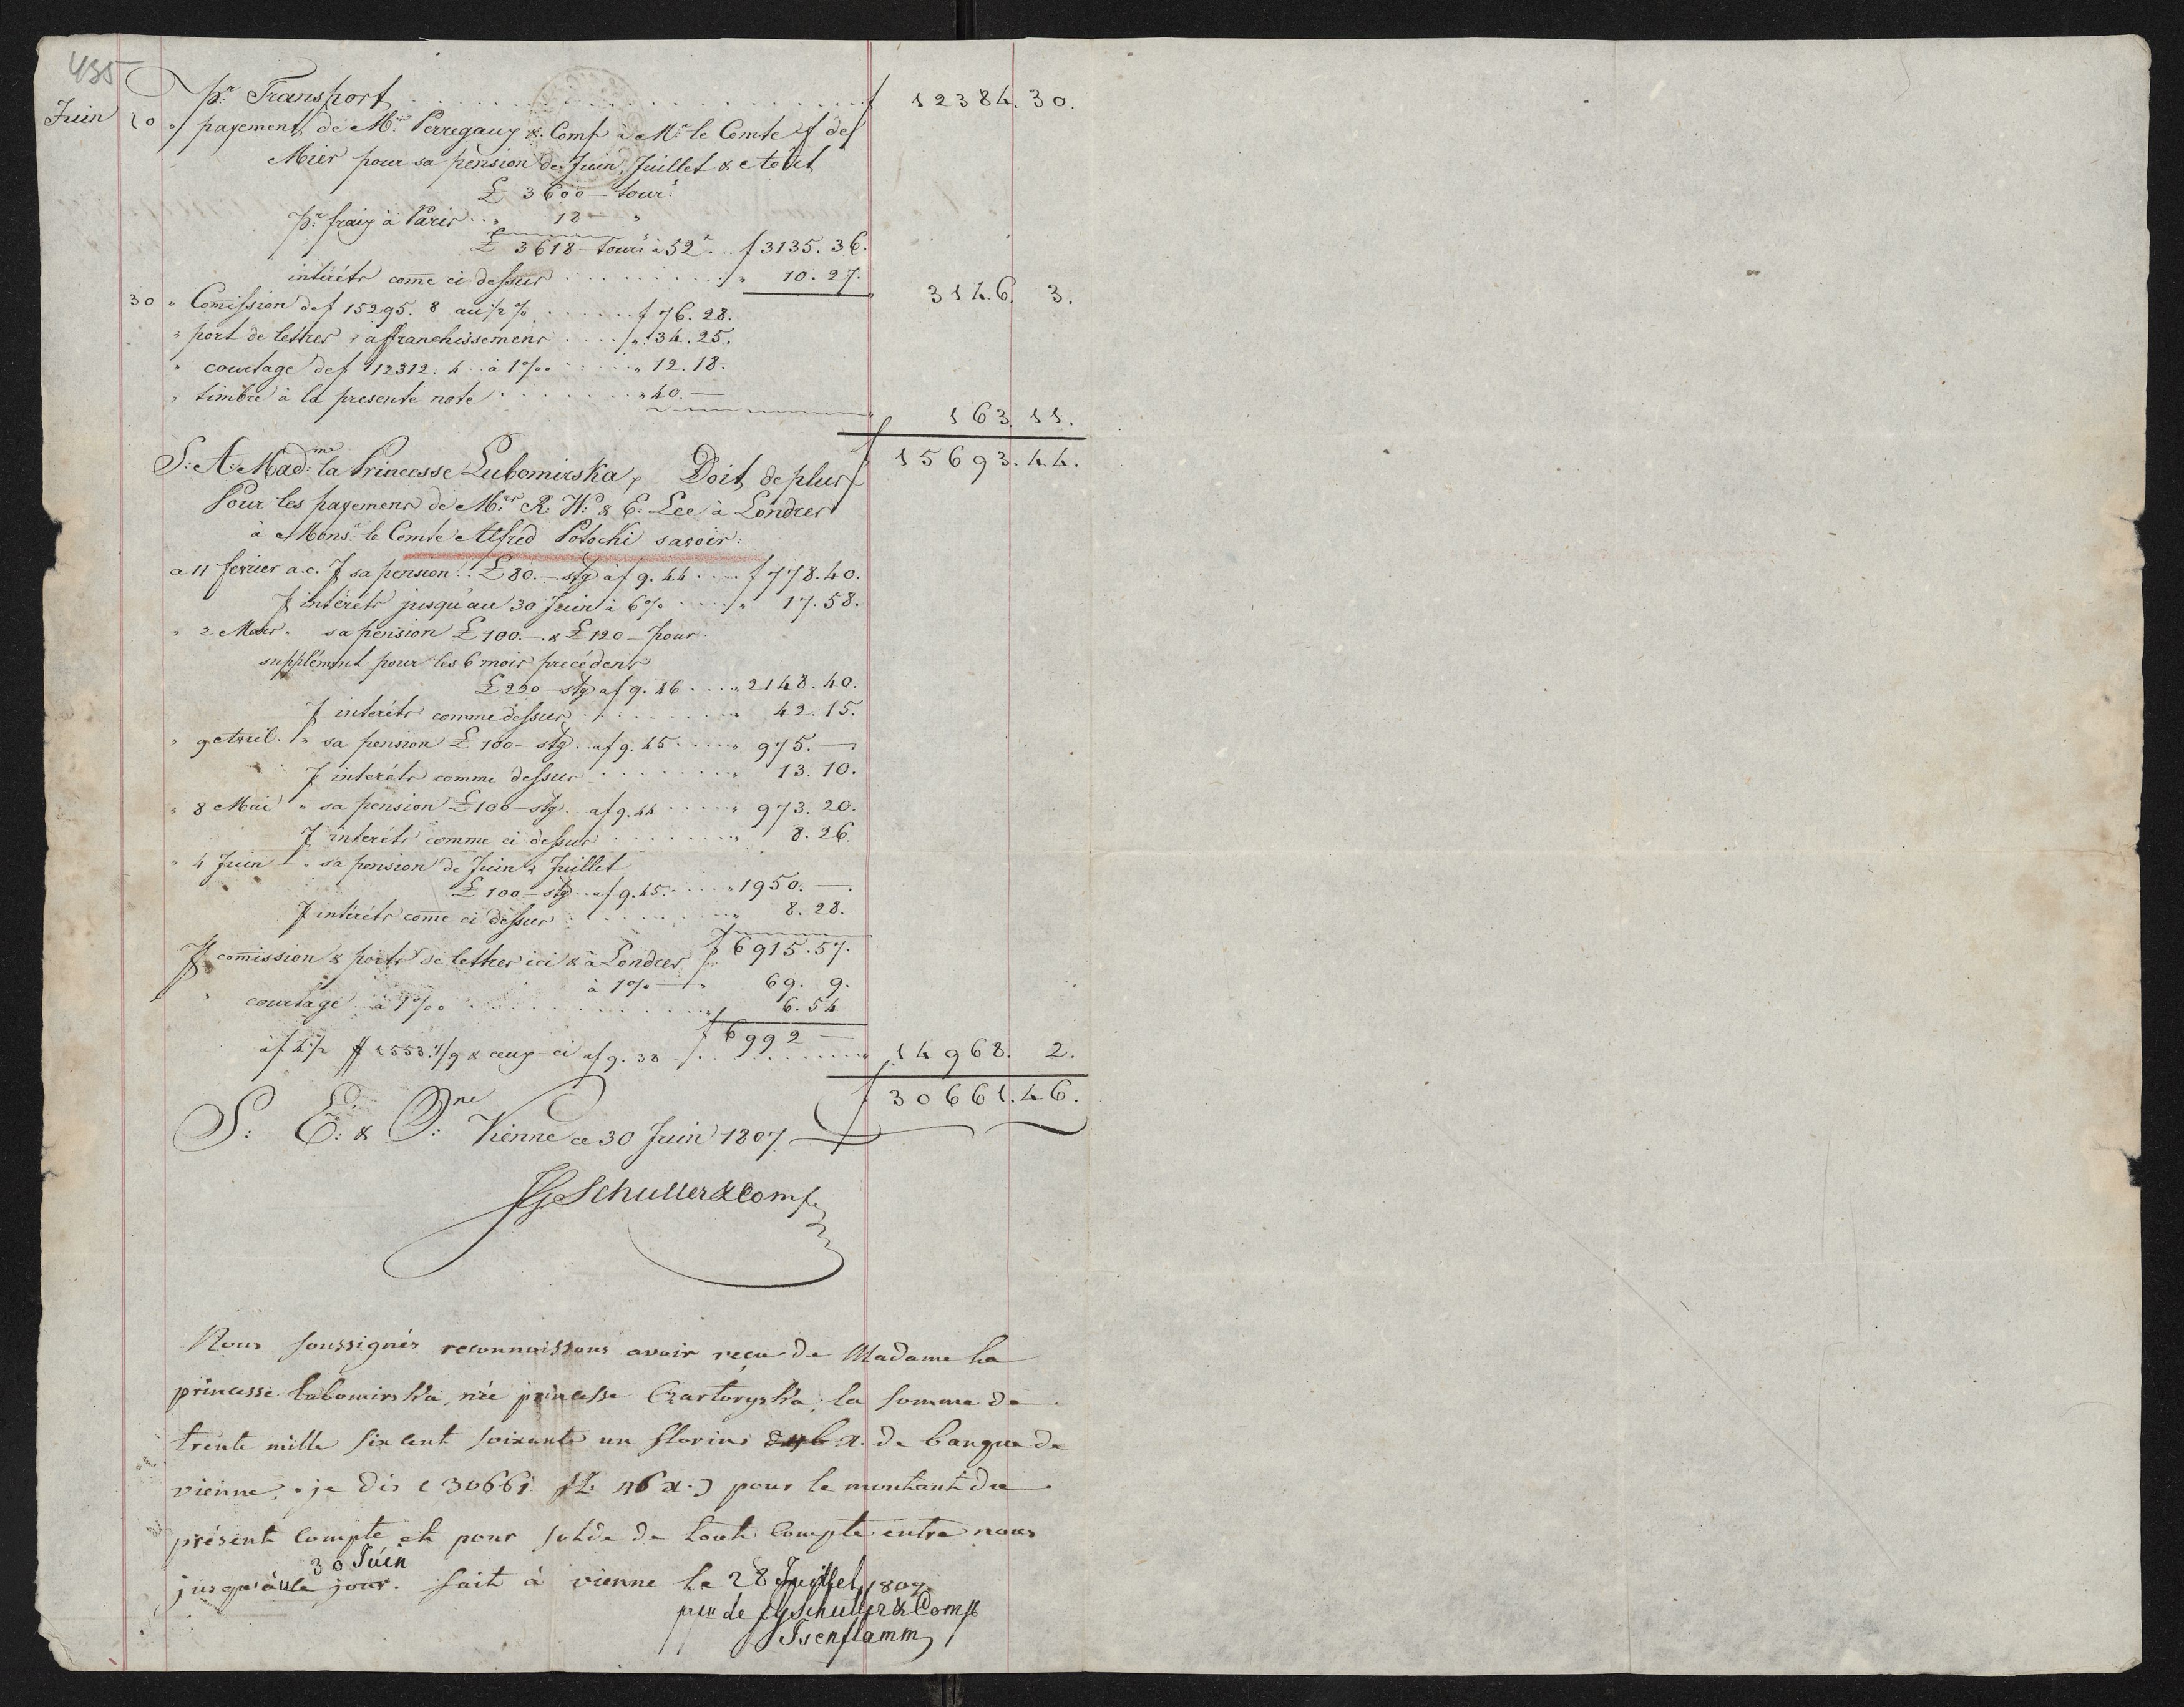 435
pr. Transport . . . . f 12384. 30.
Juin 10 " payement de Mrs. Perregaux & Comp à Mr. le Comte f de f
Mier pour sa pension de Juin, Juillet & Août
£ 3600 — tours.
pr. fraix à Paris . . " 18 — "
£ 3618 — tours à 52 . . f 3135. 36.
intérêts come ci dessus . . . . " 10. 27.
" 3146. 3.
30 " Comission de f 15295. 8 au ½ % . . . . f 76. 28.
" port de lettres & affranchissemens . . . . " 34. 25.
" courtage de f 12312. 4 . . à 1 ‰ . . . . " 12. 18.
" timbre à la presente note . . . . " 40. —
" 163. 11.
f 15693. 44.
S: A: Madme: la Princesse Lubomirska, Doit de plus
Pour les payemens de Mrs. R: W: & E: Lee à Londres
à Monsr. le Comte Alfred Potocki savoir:
a 11 fevrier a.c. p sa pension . . £ 80. — stg a f 9. 44 . . . . f 778. 40.
p intérêts jusqu'au 30 Juin à 6 % . . . . " 17. 58.
" 2 Mars " sa pension £ 100. — & £ 120 — pour
supplément pour les 6 mois precédens
£ 220 — stg a f 9. 46 . . . . " 2148. 40.
p intérêts comme dessus . . . . " 42. 15.
" 9 Avril " sa pension £ 100 — stg . . a f 9. 45 . . . . " 975. —
p intérêts comme dessus . . . . " 13. 10.
" 8 Mai " sa pension £ 100 — stg . . a f 9. 44 . . . . " 973. 20.
p intérêts comme ci dessus . . . . " 8. 26.
" 4 Juin " sa pension de Juin & Juillet
£ 100 — stg . . a f 9. 45 . . . . " 1950. —
p intérêts come ci dessus . . . . " 8. 28.
f 6915. 57.
p comission & ports de lettres ici & à Londres
à 1 % — " 69. 9.
" courtage à 1 ‰ . . . . " 6. 54
f 6992 —
à f 4½ # 1553. 7/9 & ceux-ci a f 9. 38 . . . . " 14968. 2.
f 30661. 46.
S: E: & One: Vienne ce 30 Juin 1807
JG Schuller & Comp
Nous soussignés reconnaissons avoir reçu de Madame la
princesse Lubomirska, née princesse Czartoryska, la somme de
trente mille six cent soixante un florins & 46 x. de banque de
vienne, je dis (30661 fl. 46 x.) pour le montant du
présent compte et pour solde de tout compte entre nous
30 Juin
jusqu'au le jour. fait à vienne le 28 Juillet 1807
pcu de JG Schuller & Comp
Isenflamm